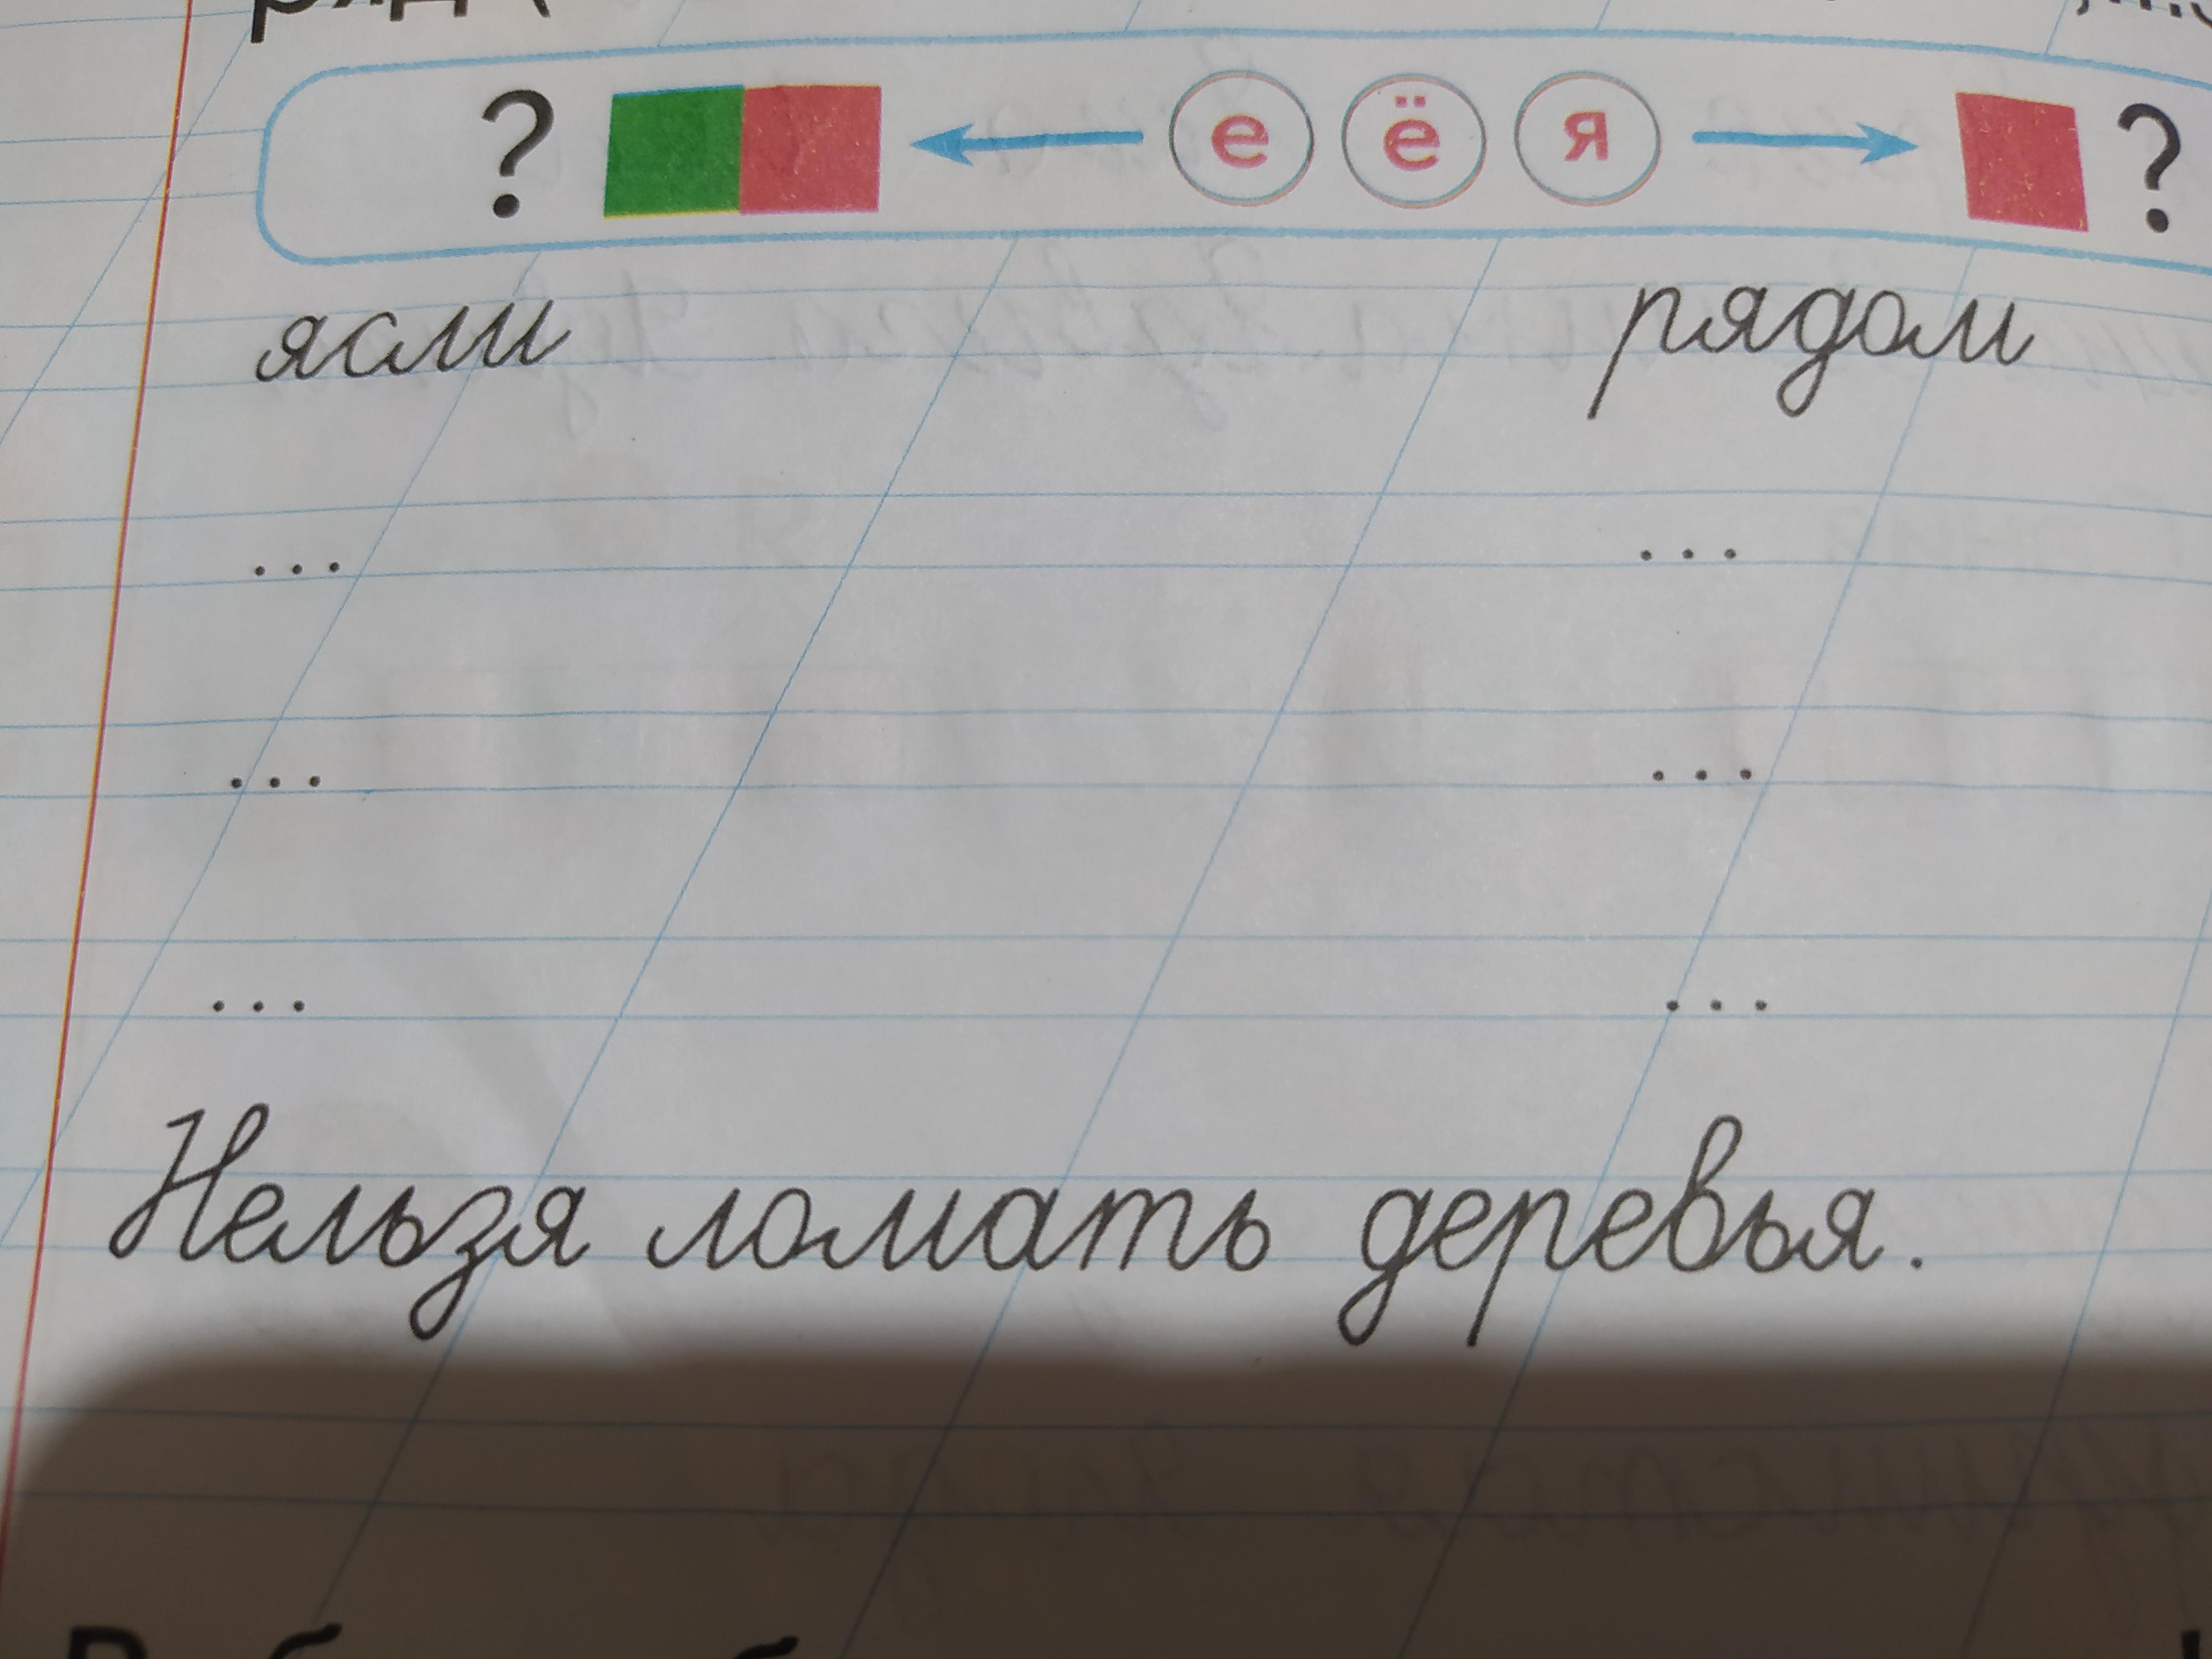 ? е ё я ?
ясли рядом
... ...
... ...
... ...
Нельзя ломать деревья.